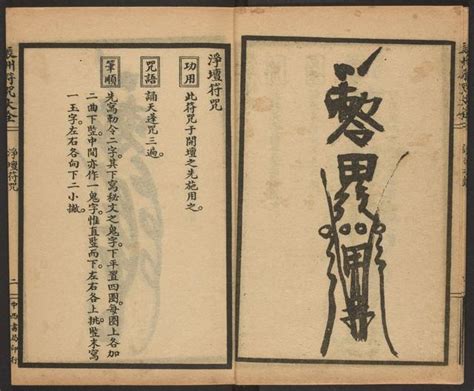 淨壇符咒
功用
此符咒于開壇之先施用之。
咒語
誦天蓬咒三遍。
筆順
先寫勅令二字。其下寫秘文之鬼字。下平置四圈。每圈上各加
二曲下竪。中間亦作一鬼字。惟直竪而下。左右各上挑。竪末寫
一玉字。左右各向下二小撇。
辰州符咒大全
淨壇符咒
二
中西書局印行